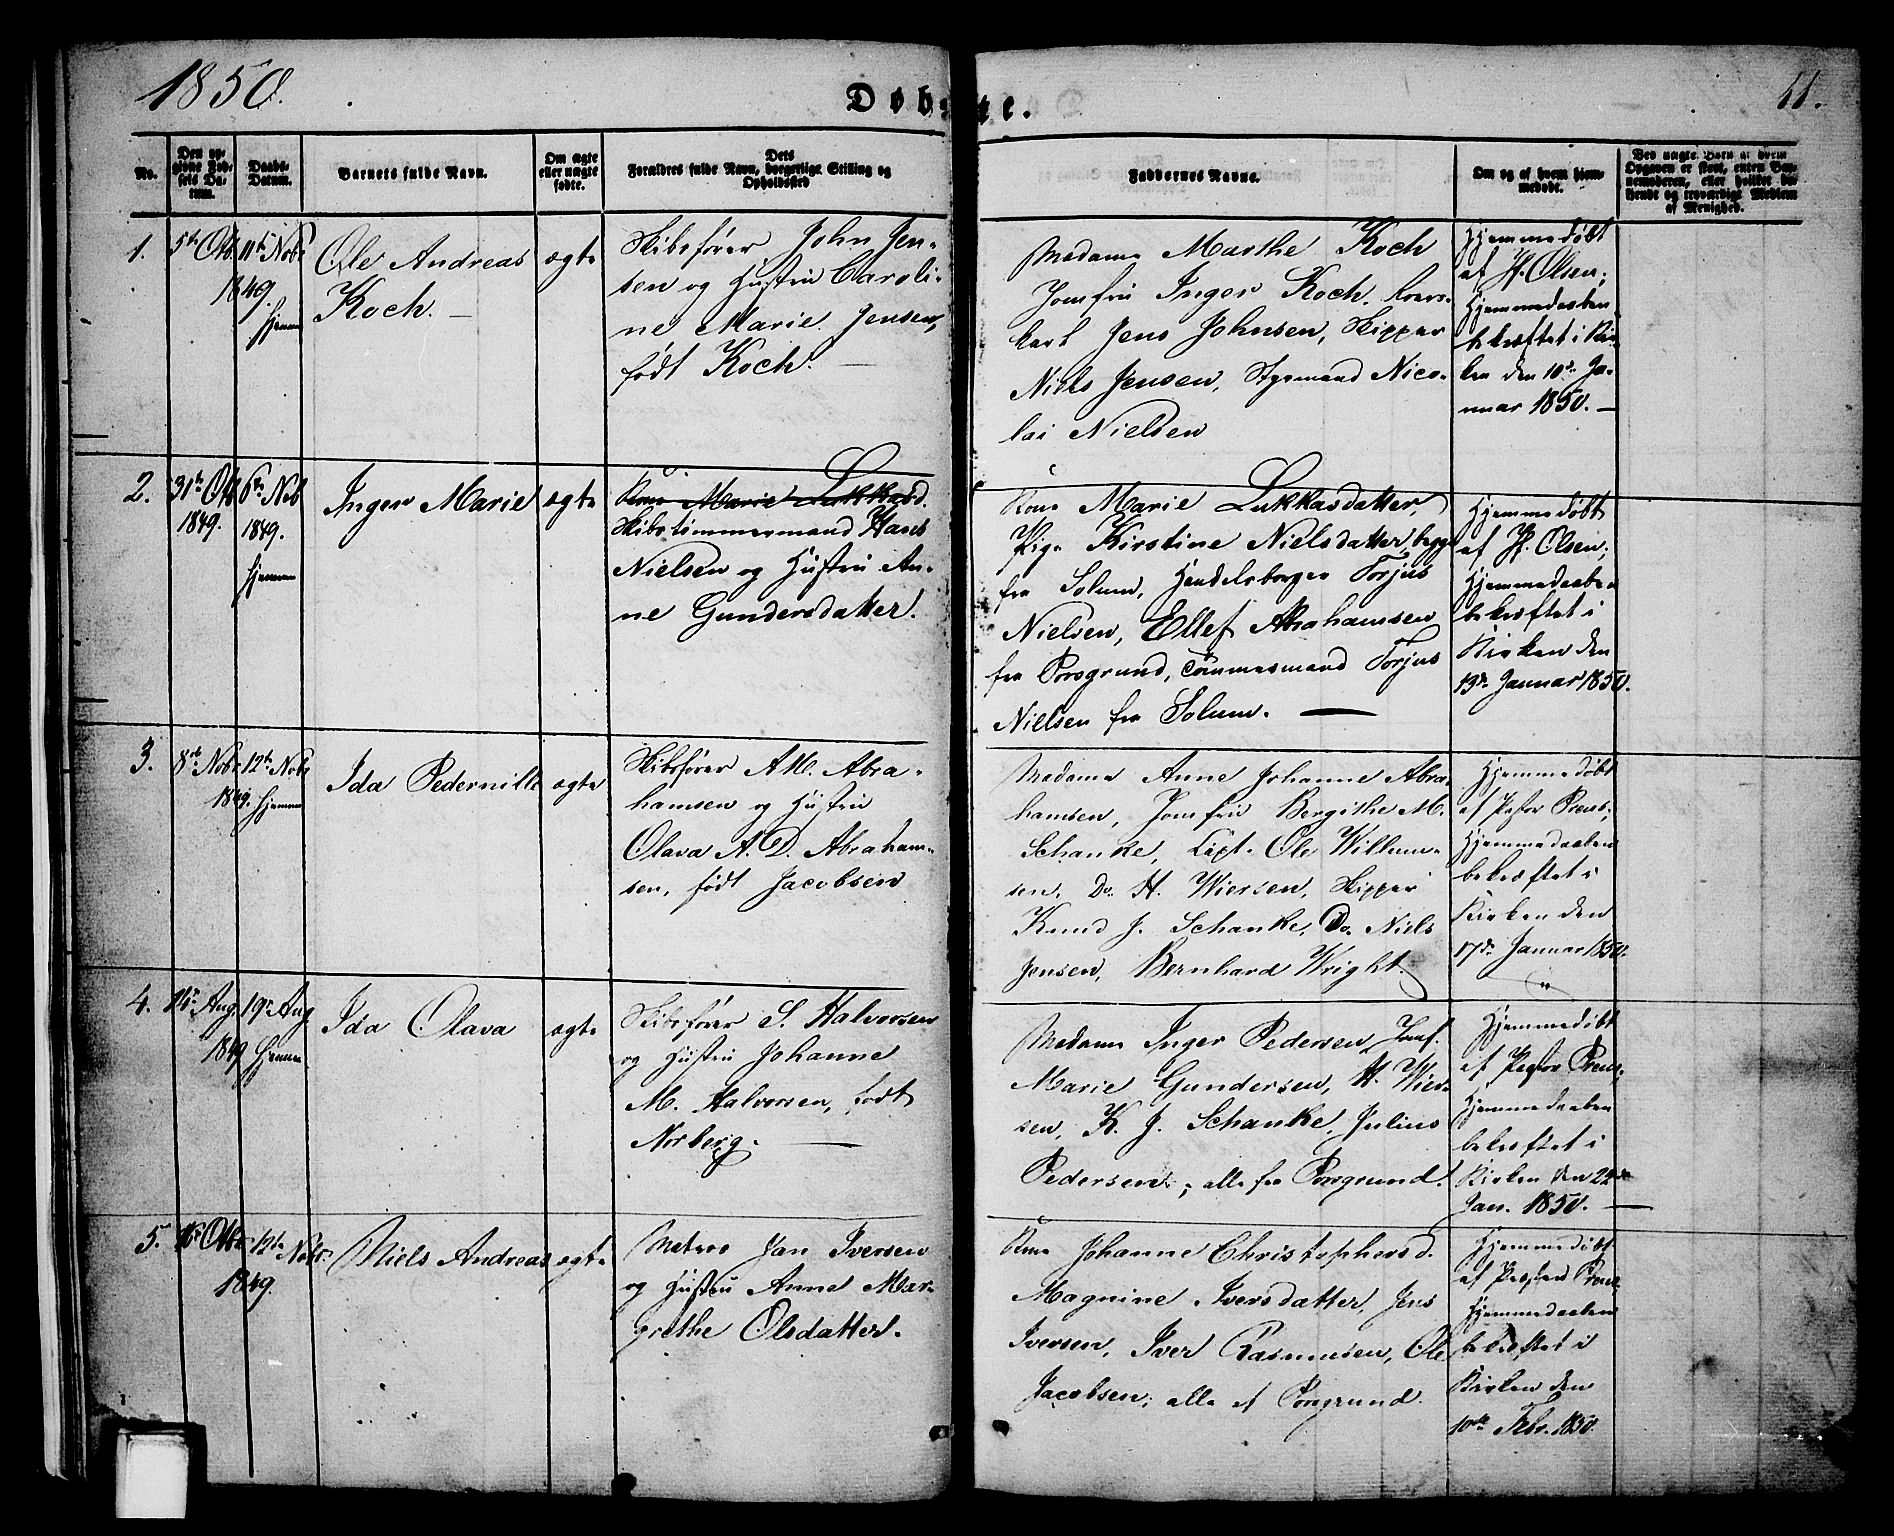 1850.
Døbte.
11.
No.
Den opgivne Fødsels Datum.
Daabs-Datum.
Barnets fulde Navn.
Om ægte eller uægte fødte.
Dets Forældres fulde Navn, borgerlige Stilling og Opholdssted
Faddernes Navne.
Om og af hvem hjemmedøbt.
1.
5te Otb.
11te Nobr
1849.
hjemm
Ole Andreas
Koch. —
ægte
Skibsfører John Jen-
sen og Hustru Caroli-
ne Marie Jensen,
født Koch. —
Madame Marthe Koch
Jomfru Inger Koch,
Jens Johnsen, Skipper
Niels Jensen, Styrmand Nico-
lai Nielsen
Hjemmedøbt
af Hr. Olsen;
Hjemmedaaben
bekræftet i Kir-
ken den 10de Ja-
nuar 1850. —
2.
31te Otb
1849.
6te Nob
1849.
hjemm
Inger Marie
ægte
Kone Marie Lukkasd.
Skibstimmermand Hans
Nielsen og Hustru An-
ne Gundersdatter.
Kone Marie Lukkasdatter,
Pige Kirstine Nielsdatter, begge
fra Solum, Handelsborger Torjus
Nielsen, Ellef Abrahamsen
fra Porsgrund, Tømmermand Torjus
Nielsen fra Solum. —
Hjemmedøbt
af Hr. Olsen;
Hjemmedaaben
bekræftet i
Kirken den
13de Januar 1850.
3.
8de Nobr
1849.
12te Nobr
hjemm
Ida Pedernille
ægte
Skibsfører A. M. Abra-
hamsen og Hustru
Olava A. D. Abraham-
sen, født Jacobsen
Madame Anne Johanne Abra-
hamsen, Jomfru Bergithe M.
Schanke, Capt. Ole Willum-
sen, Do. H. Wiersen, Skipper
Knud J. Schanke, Do. Niels
Jensen, Bernhard Wright.
Hjemmedøbt
af Pastor Preus;
Hjemmedaaben
bekræftet i
Kirken den
17de Januar 1850.
4.
Aug.
1849
19de Aug
hjemm
Ida Olava
ægte
Skibsfører S. Halvorsen
og Hustru Johanne
M. Halvorsen, født
Norberg. —
Madame Inger Pedersen, Jomf.
Marie Gundersen, H. Wier-
sen, K. J. Schanke, Julius
Pedersen; alle fra Porsgrund.
Hjemmedøbt
af Pastor Preus;
Hjemmedaaben
bekræftet i
Kirken den 22de
Jan. 1850. —
5.
16de Otbr.
1849.
12te Nobr.
Niels Andreas
ægte
Matros Jan Iversen
og Hustru Anne Mar-
grethe Olsdatter.
Kone Johanne Christophersd.
Magnine Iversdatter, Jens
Iversen, Iver Rasmusen, Ole
Jacobsen; alle af Porsgrund.
Hjemmedøbt
af Præsten Preus.
Hjemmedaaben
bekræftet i
Kirken den
10de Febr. 1850.